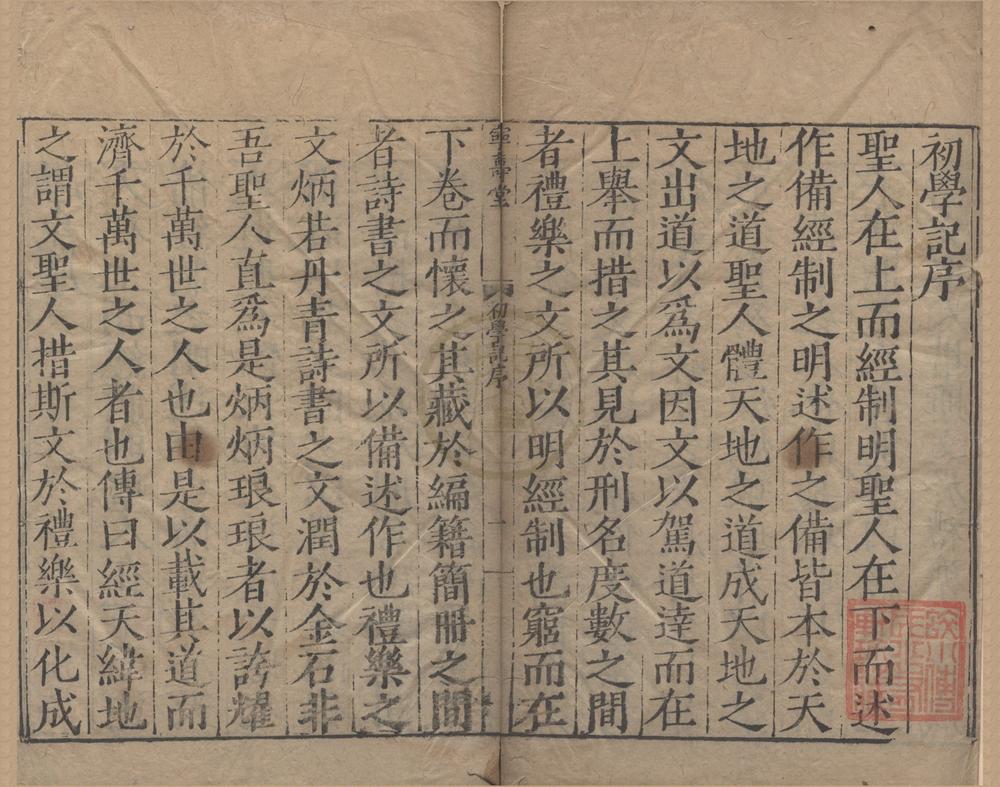 初學記序
聖人在上而經制明聖人在下而述
作備經制之明述作之備皆本於天
地之道聖人體天地之道成天地之
文出道以為文因文以駕道達而在
上舉而措之其見於刑名度數之間
者禮樂之文所以明經制也窮而在
寧壽堂
初學記序
一
下卷而懷之其藏於編籍簡冊之間
者詩書之文所以備述作也禮樂之
文炳若丹青詩書之文潤於金石非
吾聖人直為是炳炳琅琅者以誇耀
於千萬世之人也由是以載其道而
濟千萬世之人者也傳曰經天緯地
之謂文聖人措斯文於禮樂以化成